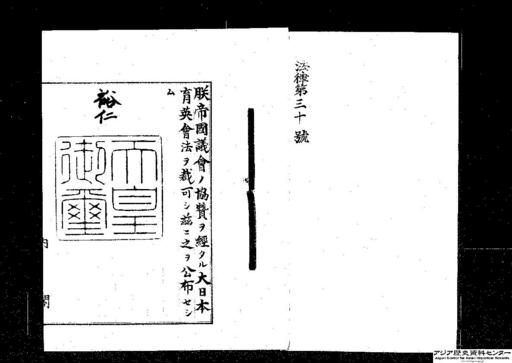 法律第三十號
朕帝國議會ノ協贊ヲ經タル大日本
育英會法ヲ裁可シ茲ニ之ヲ公布セシ
ム
裕仁
天皇
御璽
内
閣
アジア歴史資料センター
Japan Center for Asian Historical Records